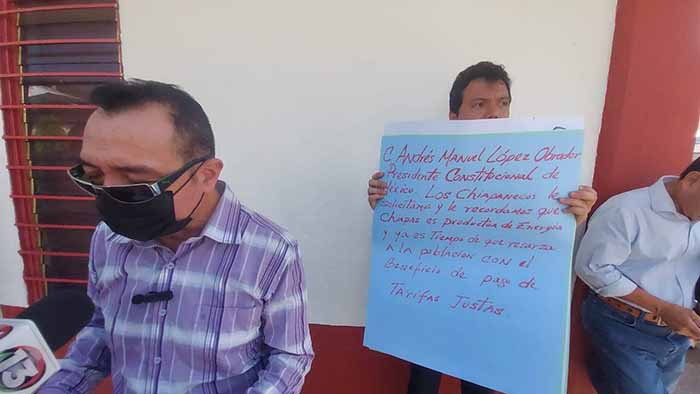 C. Andrés Manuel López Obrador
Presidente Constitucional de
México. Los Chiapanecos le
solicitamos y le recordamos que
es productor de Energía
y ya es Tiempo de que
a la población con el
Beneficio de pago de
Tarifas Justas
13